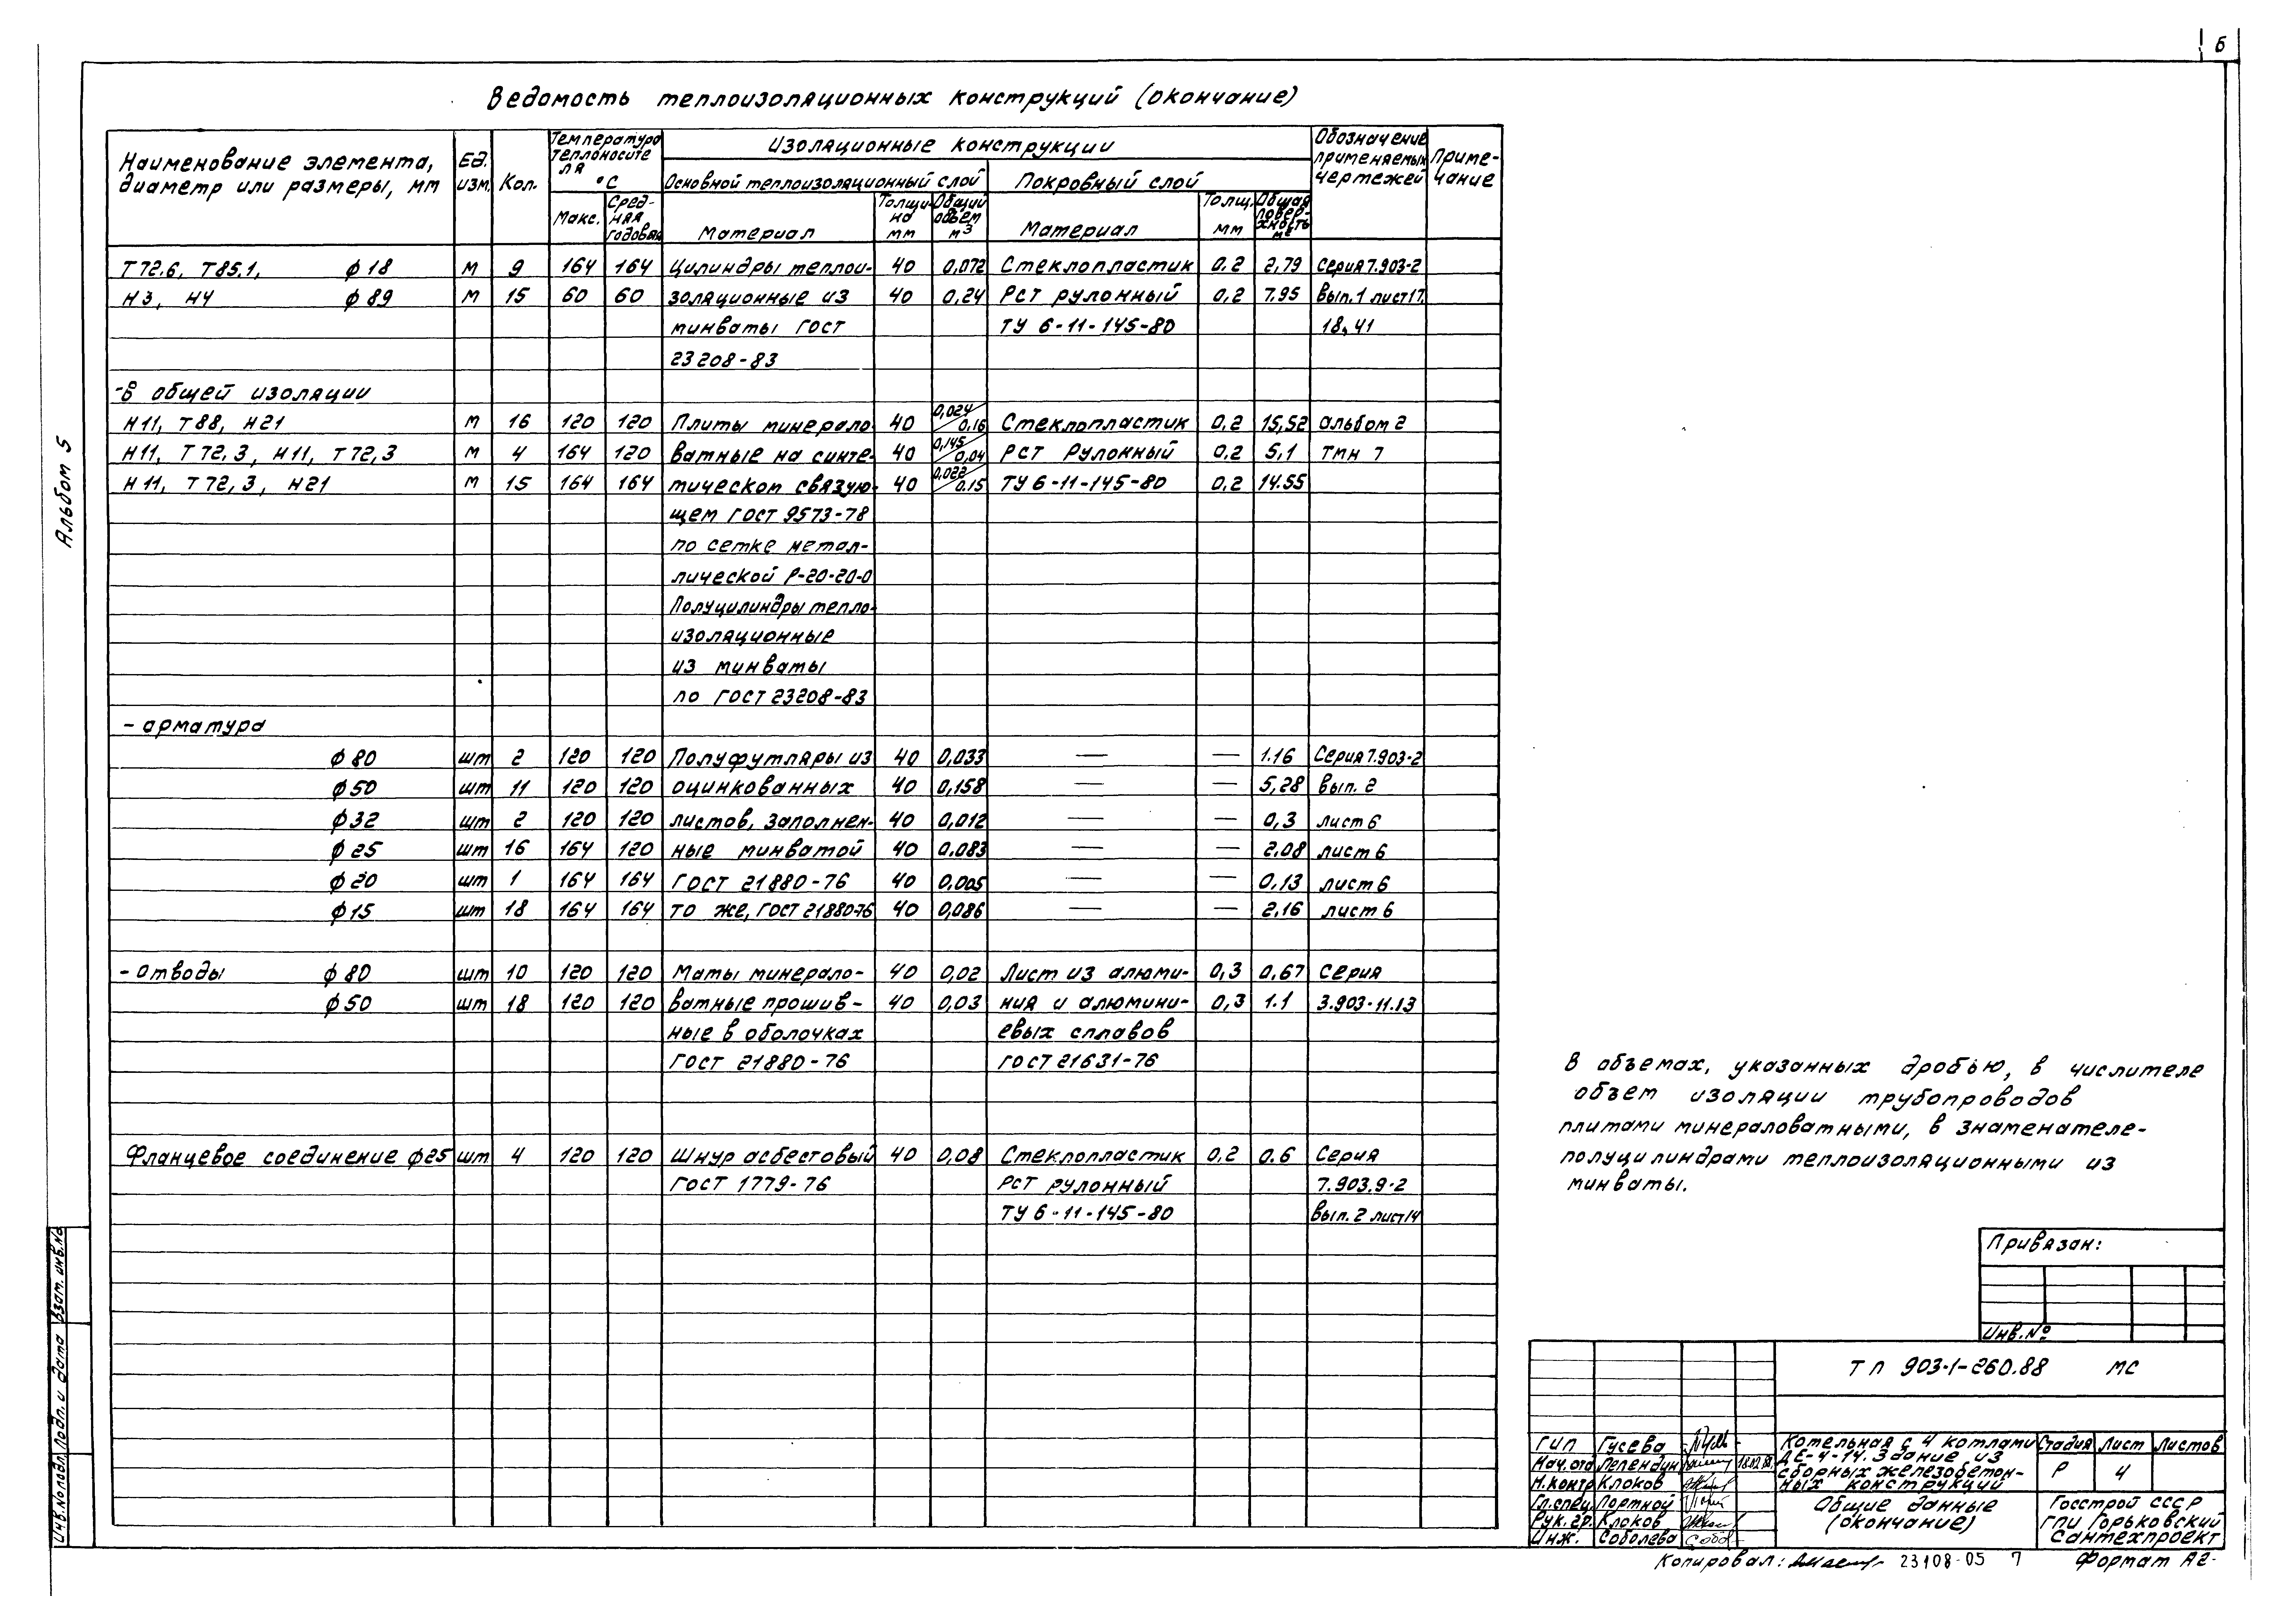 6
Ведомость теплоизоляционных конструкций (окончание)
Наименование элемента, диаметр или размеры, мм
Ед. изм.
Кол.
Температура теплоносителя °С
Макс.
Средняя годовая
Изоляционные конструкции
Основной теплоизоляционный слой
Покровный слой
Материал
Толщина мм
Общий объем м3
Материал
Толщ. мм
Общая поверхность м2
Обозначение применяемых чертежей
Примечание
Т72.6, Т85.1, ф18 м 9 164 164 Цилиндры теплои- 40 0,072 Стеклопластик 0.2 2,79 Серия 7.903-2
Н3, Н4 ф89 м 15 60 60 золяционные из 40 0.24 РСТ рулонный 0,2 7.95 Вып.1 лист17.
минваты ГОСТ ТУ 6-11-145-80 18,41
23208-83
-В общей изоляции
Н11, Т88, Н21 м 16 120 120 Плиты минерало 40 0,024/0,16 Стеклопластик 0,2 15,52 альбом 2
Н11, Т72,3, Н11, Т72,3 м 4 164 120 ватные на синте- 40 0,145/0,04 РСТ рулонный 0.2 5,1 ТМН 7
Н11, Т72,3, Н21 м 15 164 164 тическом связую- 40 0,022/0.15 ТУ 6-11-145-80 0,2 14.55
щем ГОСТ 9573-78
по сетке метал-
лической Р-20-20-0
Полуцилиндры тепло-
изоляционные
из минваты
по ГОСТ 23208-83
- арматура
ф80 шт 2 120 120 Полуфутляры из 40 0,033 — — 1.16 Серия 7.903-2
ф50 шт 11 120 120 оцинкованных 40 0,158 — — 5,28 Вып. 2
ф32 шт 2 120 120 листов, заполнен- 40 0,012 — — 0,3 лист 6
ф25 шт 16 164 120 ные минватой 40 0.083 — — 2.08 лист 6
ф20 шт 1 164 164 ГОСТ 21880-76 40 0,005 — — 0,13 лист 6
ф15 шт 18 164 164 то же, ГОСТ 21880-76 40 0,086 — — 2,16 лист 6
- отводы ф80 шт 10 120 120 Маты минерало- 40 0,02 Лист из алюми- 0,3 0,67 Серия
ф50 шт 18 120 120 ватные прошив- 40 0,03 ния и алюмини- 0,3 1.1 3.903-11.13
ные в оболочках евых сплавов
ГОСТ 21880-76 ГОСТ 21631-76
Фланцевое соединение ф25 шт 4 120 120 Шнур асбестовый 40 0,08 Стеклопластик 0,2 0.6 Серия
ГОСТ 1779-76 РСТ рулонный 7.903.9-2
ТУ 6-11-145-80 Вып. 2 лист14
В объемах, указанных дробью, в числителе
объем изоляции трубопроводов
плитами минераловатными, в знаменателе-
полуцилиндрами теплоизоляционными из
минваты.
Альбом 5
Взам. инв.№
Подп. и дата
Инв.№ подл.
Привязан:
Инв.№
ТП 903-1-260.88 МС
ГИП Гусева
Нач. отд Пелендин 18.02.88.
Н.контр Клоков
Гл.спец. Портной
Рук. гр. Клоков
Инж. Соболева
Котельная с 4 котлами
ДЕ-4-14. Здание из
сборных железобетон-
ных конструкций
Стадия Лист Листов
Р 4
Общие данные
(окончание)
Госстрой СССР
ГПИ Горьковский
Сантехпроект
Копировал: 23108-05 7 Формат А2